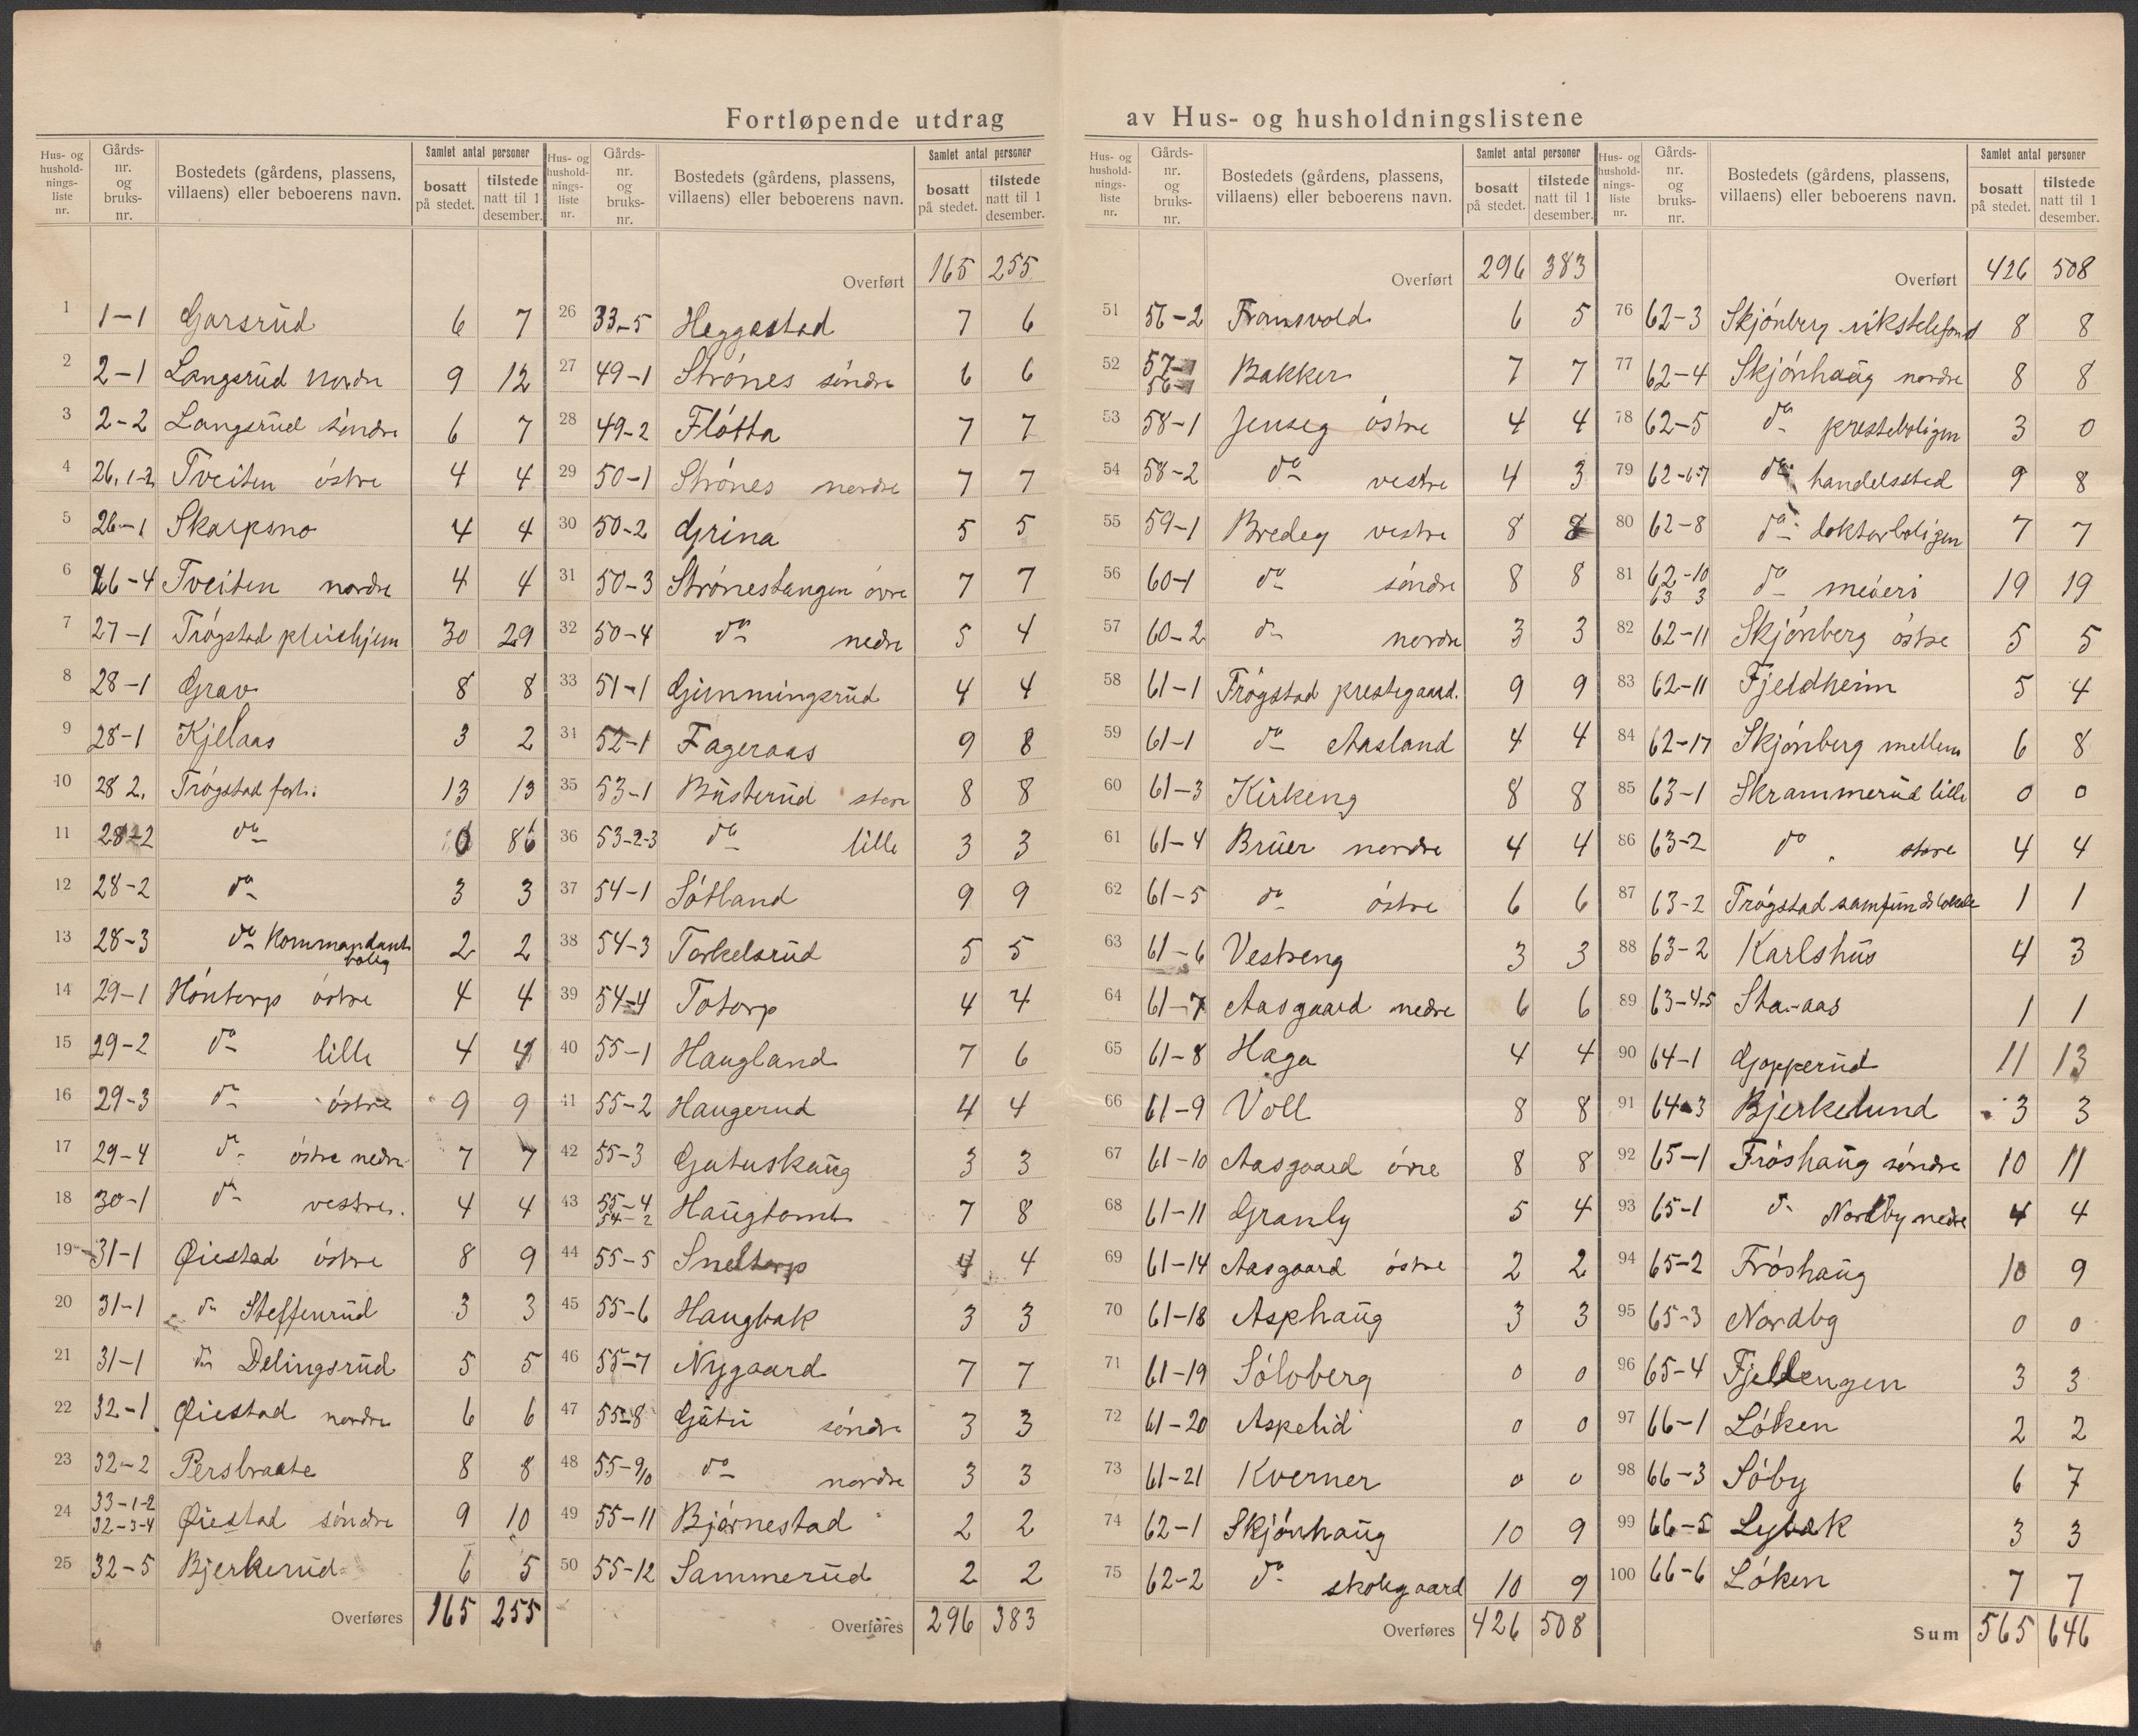 Fortløpende utdrag av Hus- og husholdningslistene
Hus- og hushold-nings-liste nr. | Gårds-nr. og bruks-nr. | Bostedets (gårdens, plassens, villaens) eller beboerens navn. | Samlet antal personer | bosatt på stedet. | tilstede natt til 1 desember.
1 1-1 Garsrud 6 7
2 2-1 Langsrud nordre 9 12
3 2-2 Langsrud söndre 6 7
4 26,1-2 Tveiten östre 4 4
5 26-1 Skarpsno 4 4
6 26-4 Tveiten nordre 4 4
7 27-1 Trögstad pleiehjem 30 29
8 28-1 Grav 8 8
9 28-1 Kjelaas 3 2
10 28 2. Trögstad fort. 13 13
11 28-2 do 0 86
12 28-2 do 3 3
13 28-3 do Kommandant bolig 2 2
14 29-1 Höntorp östre 4 4
15 29-2 do lille 4 4
16 29-3 do östre 9 9
17 29-4 do östre nedre 7 7
18 30-1 do vestre. 4 4
19 31-1 Øiestad östre 8 9
20 31-1 do Steffenrud 3 3
21 31-1 do Delingsrud 5 5
22 32-1 Øiestad nordre 6 6
23 32-2 Persbraate 8 8
24 33-1-2 32-3-4 Øiestad söndre 9 10
25 32-5 Bjerkerud 6 5
Overføres 165 255
Hus- og hushold-nings-liste nr. | Gårds-nr. og bruks-nr. | Bostedets (gårdens, plassens, villaens) eller beboerens navn. | Samlet antal personer | bosatt på stedet. | tilstede natt til 1 desember.
Overført 165 255
26 33-5 Heggestad 7 6
27 49-1 Strönes söndre 6 6
28 49-2 Flötta 7 7
29 50-1 Strönes nordre 7 7
30 50-2 Grina 5 5
31 50-3 Strönestangen övre 7 7
32 50-4 do nedre 5 4
33 51-1 Gimmingsrud 4 4
34 52-1 Fageraas 9 8
35 53-1 Busterud store 8 8
36 53-2-3 do lille 3 3
37 54-1 Sötland 9 9
38 54-3 Torkelsrud 5 5
39 54-4 Totorp 4 4
40 55-1 Haugland 7 6
41 55-2 Haugerud 4 4
42 55-3 Gutuskaug 3 3
43 55-4 54-2 Haugtomt 7 8
44 55-5 Sneltorp 4 4
45 55-6 Haugbak 3 3
46 55-7 Nygaard 7 7
47 55-8 Gutu söndre 3 3
48 55-9/10 do nordre 3 3
49 55-11 Björnestad 2 2
50 55-12 Sammerud 2 2
Overføres 296 383
Hus- og hushold-nings-liste nr. | Gårds-nr. og bruks-nr. | Bostedets (gårdens, plassens, villaens) eller beboerens navn. | Samlet antal personer | bosatt på stedet. | tilstede natt til 1 desember.
Overført 296 383
51 56-2 Framsvold 6 5
52 57-1 56-1 Bakker 7 7
53 58-1 Jenseg östre 4 4
54 58-2 do vestre 4 3
55 59-1 Bredeg vestre 8 8
56 60-1 do söndre 8 8
57 60-2 do nordre 3 3
58 61-1 Trögstad prestegaard. 9 9
59 61-1 do Aasland 4 4
60 61-3 Kirkeng 8 8
61 61-4 Bruer nordre 4 4
62 61-5 do östre 6 6
63 61-6 Vestreng 3 3
64 61-7 Aasgaard nedre 6 6
65 61-8 Haga 4 4
66 61-9 Voll 8 8
67 61-10 Aasgaard övre 8 8
68 61-11 Granly 5 4
69 61-14 Aasgaard östre 2 2
70 61-18 Asphaug 3 3
71 61-19 Sölvberg 0 0
72 61-20 Aspelid 0 0
73 61-21 Kverner 0 0
74 62-1 Skjönhaug 10 9
75 62-2 do skolegaard 10 9
Overføres 426 508
Hus- og hushold-nings-liste nr. | Gårds-nr. og bruks-nr. | Bostedets (gårdens, plassens, villaens) eller beboerens navn. | Samlet antal personer | bosatt på stedet. | tilstede natt til 1 desember.
Overført 426 508
76 62-3 Skjönberg rikstelefonst 8 8
77 62-4 Skjönhaug nordre 8 8
78 62-5 do presteboligen 3 0
79 62-6-7 do handelssted 9 8
80 62-8 do doktorboligen 7 7
81 62-10 63 3 do meieri 19 19
82 62-11 Skjönberg östre 5 5
83 62-11 Fjeldheim 5 4
84 62-17 Skjönberg mellem 6 8
85 63-1 Skrammerud lille 0 0
86 63-2 do store 4 4
87 63-2 Trögstad samfundslokale 1 1
88 63-2 Karlshus 4 3
89 63-4-5 Sta-aas 1 1
90 64-1 Gopperud 11 13
91 64-3 Bjerkelund 3 3
92 65-1 Fröshaug söndre 10 11
93 65-1 do Nordby nedre 4 4
94 65-2 Fröshaug 10 9
95 65-3 Nordby 0 0
96 65-4 Fjeldengen 3 3
97 66-1 Löken 2 2
98 66-3 Söby 6 7
99 66-5 Lybæk 3 3
100 66-6 Löken 7 7
Sum 565 646